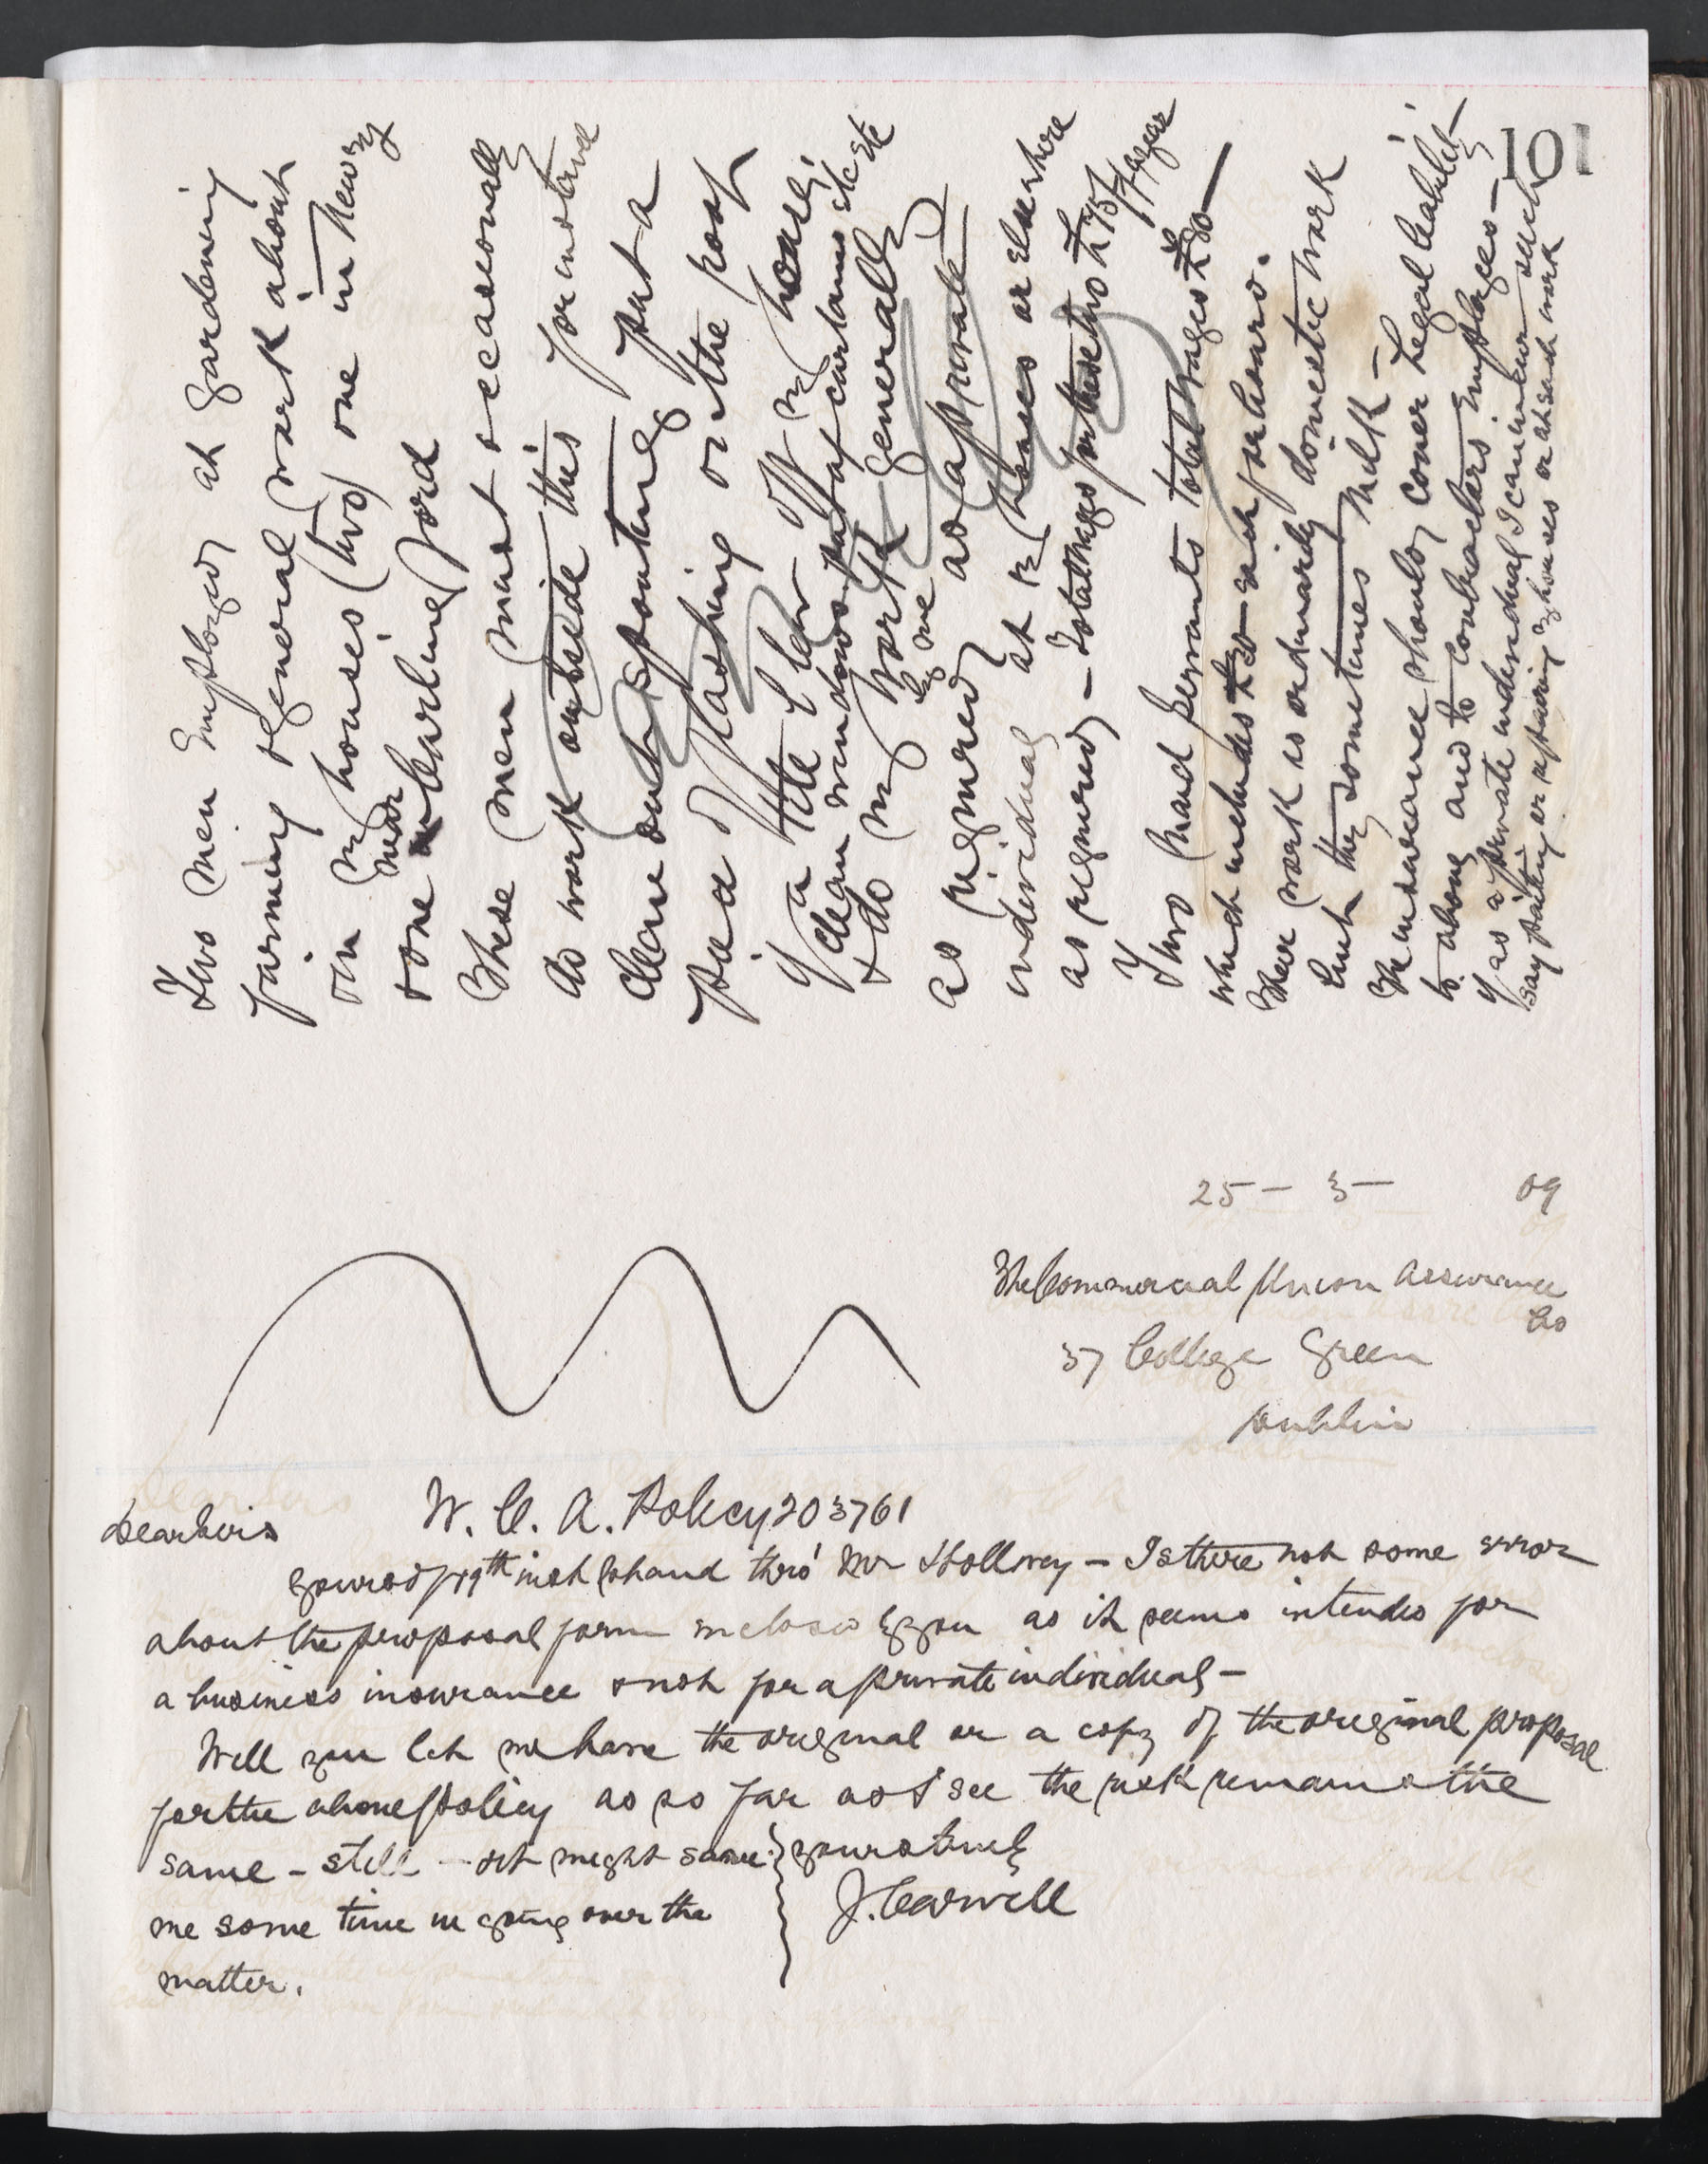 101
Two men Employed at Gardening
farming & General work about
on my houses (two) one in Newry
& one near Carlingford
These men must occasionally
do work outside this for instance
Clean out spouting put a
piece of flashing on the roof
if a tile blew off my house,
clean windows put up curtains etc etc
& do my work generally
as required by me as a private
individual at my houses or elsewhere
as required — Total wages for these two £75 per year
Two maid servants total wages £80 —
which includes £20 each for board.
Their work is ordinarily domestic work
but they sometimes milk —
The insurance should cover Legal liability
to above and to contractors Employees —
if as a private individual I can incur such
say painting or repairing my houses or at such work
25 — 3 — 09
The Commercial Union Assurance
Co
37 College Green
Dublin
W. C. A. Policy 203761
Dear Sirs
Yours of 19th inst to hand thro' Mr Hollwey — Is there not some error
about the proposal form enclosed by you as it seems intended for
a business insurance & not for a private individual —
Will you let me have the original or a copy of the original proposal
for the above policy as so far as I see the risk remains the
same — still — it might save
me some time in going over the
matter.
yours truly
J. Carvill